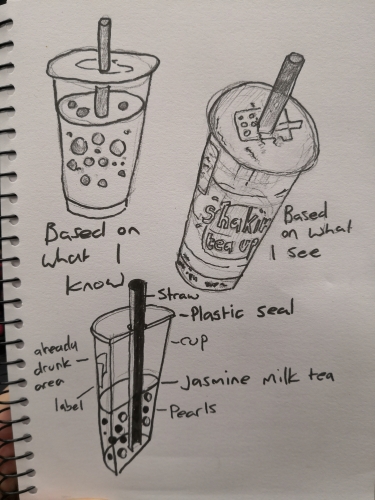 Based on
what I
know
shakin
tea up
Based
on what
I see
Straw
Plastic seal
cup
already
drunk
area
label
Jasmine milk tea
Pearls